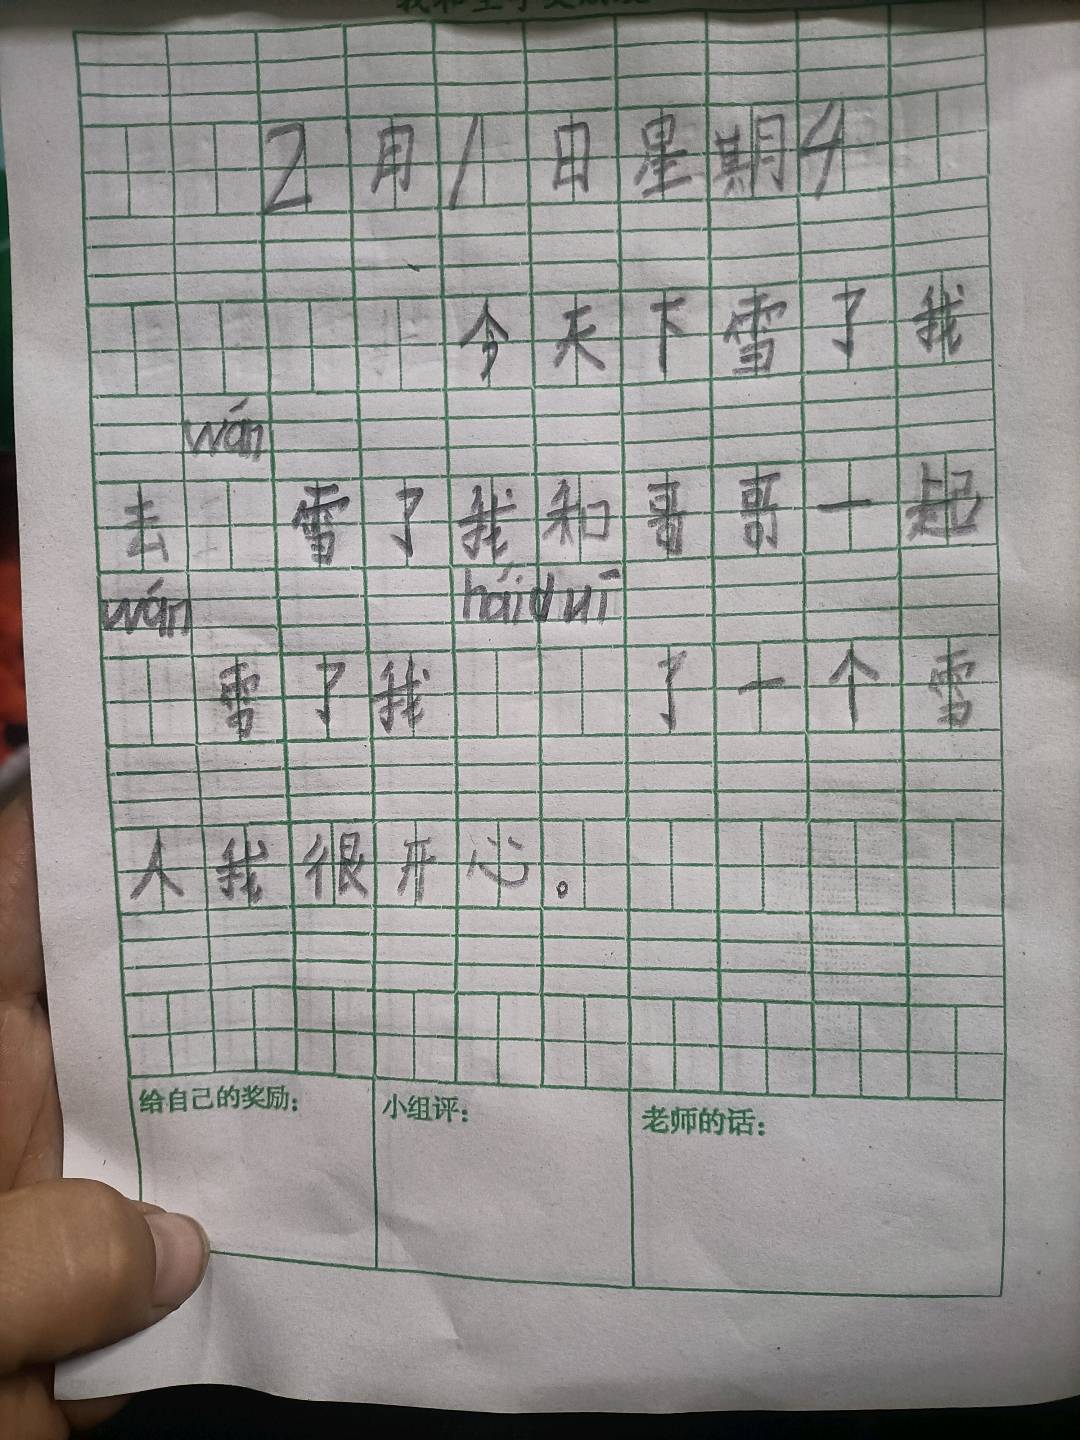 2月1日星期4
今天下雪了我
去wán雪了我和哥哥一起
wán雪了我háiduī了一个雪
人我很开心。
给自己的奖励: 小组评: 老师的话: